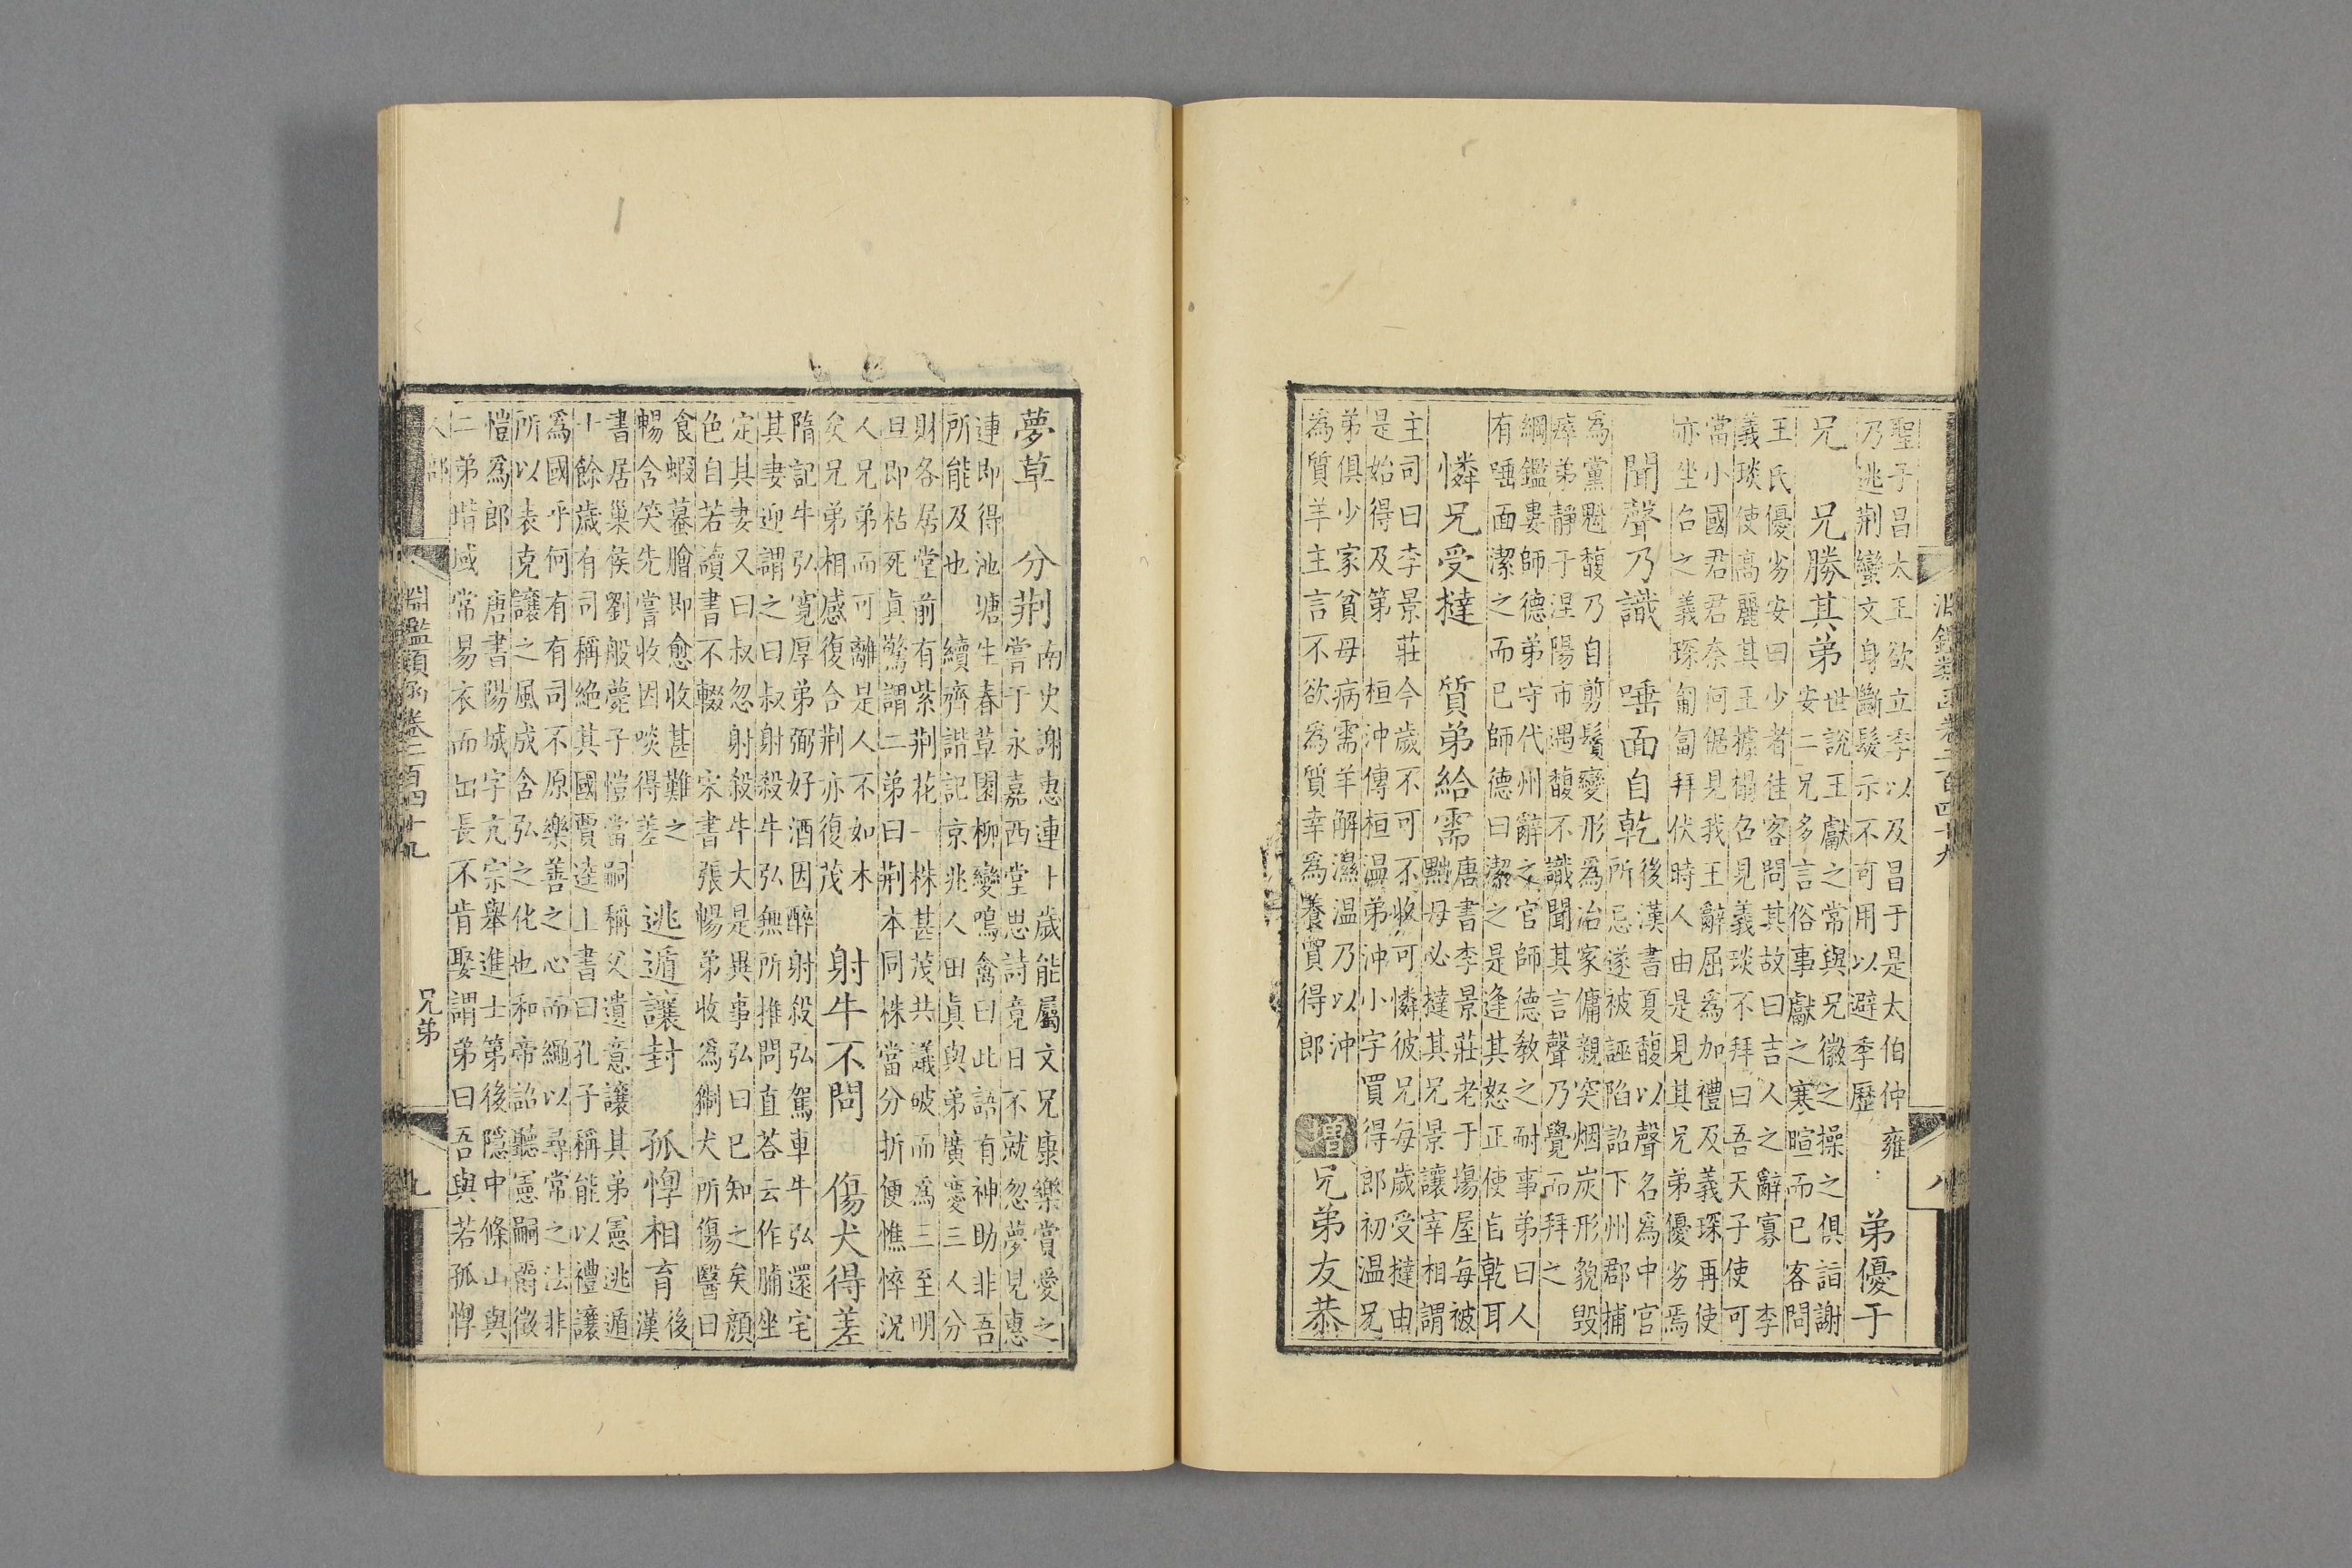 淵鑑類函卷二百四十九 八
聖子昌太王欲立季以及昌于是太伯仲雍
乃逃荆蠻文身斷髮示不可用以避季歷
弟優于
兄 兄勝其弟
世說王獻之常與兄徽之操之俱詣謝
安二兄多言俗事獻之寒暄而已客問
王氏優劣安曰少者佳客問其故曰吉人之辭寡 李
義琰使高麗其王據榻召見義琰不拜曰吾天子使可
當小國君君奈何倨見我王辭屈爲加禮及義琛再使
亦坐召之義琛匍匐拜伏時人由是見其兄弟優劣焉
聞聲乃識 唾面自乾
後漢書夏馥以聲名爲中官
所忌遂被誣陷詔下州郡捕
爲黨魁馥乃自剪鬚變形爲冶家傭親突烟炭形貌毁
瘁弟靜于涅陽市遇馥不識聞其言聲乃覺而拜之
綱鑑婁師德弟守代州辭之官師德教之耐事弟曰人
有唾面潔之而已師德曰潔之是逢其怒正使自乾耳
憐兄受撻 質弟給需
唐書李景莊老于塲屋每被
黜母必撻其兄景讓宰相謂
主司曰李景莊今歲不可不收可憐彼兄每歲受撻由
是始得及第 桓沖傳桓温弟沖小字買得郎初温兄
弟俱少家貧母病需羊解濕温乃以沖
為質羊主言不欲為質幸爲養買得郎
增 兄弟友恭
夢草 分荆
南史謝惠連十歲能屬文兄康樂賞愛之
嘗于永嘉西堂思詩竟日不就忽夢見惠
連即得池塘生春草園柳變鳴禽曰此語有神助非吾
所能及也 續齊諧記京兆人田真與弟廣慶三人分
財各居堂前有紫荆花一株甚茂共議破而爲三至明
旦即枯死真驚謂二弟曰荆本同株當分折便憔悴況
人兄弟而可離是人不如木
矣兄弟相感復合荆亦復茂
射牛不問 傷犬得差
隋記牛弘寬厚弟弼好酒因醉射殺弘駕車牛弘還宅
其妻迎謂之曰叔射殺牛弘無所推問直荅云作脯坐
定其妻又曰叔忽射殺牛大是異事弘曰已知之矣顔
色自若讀書不輟 宋書張暢弟收爲猘犬所傷醫曰
食蝦蟇膾即愈收甚難之
暢含笑先嘗收因啖得差
逃遁讓封 孤惸相育
後
漢
書居巢侯劉般薨子愷當嗣稱父遺意讓其弟憲逃遁
十餘歲有司稱絶其國賈逵上書曰孔子稱能以禮讓
爲國乎何有有司不原樂善之心而繩以尋常之法非
所以表克讓之風成含弘之化也和帝詔聽憲嗣爵徵
愷爲郎 唐書陽城字亢宗舉進士第後隱中條山與
二弟堦域常易衣而出長不肯娶謂弟曰吾與若孤惸
人部
淵鑑類函卷二百四十九 兄弟 九